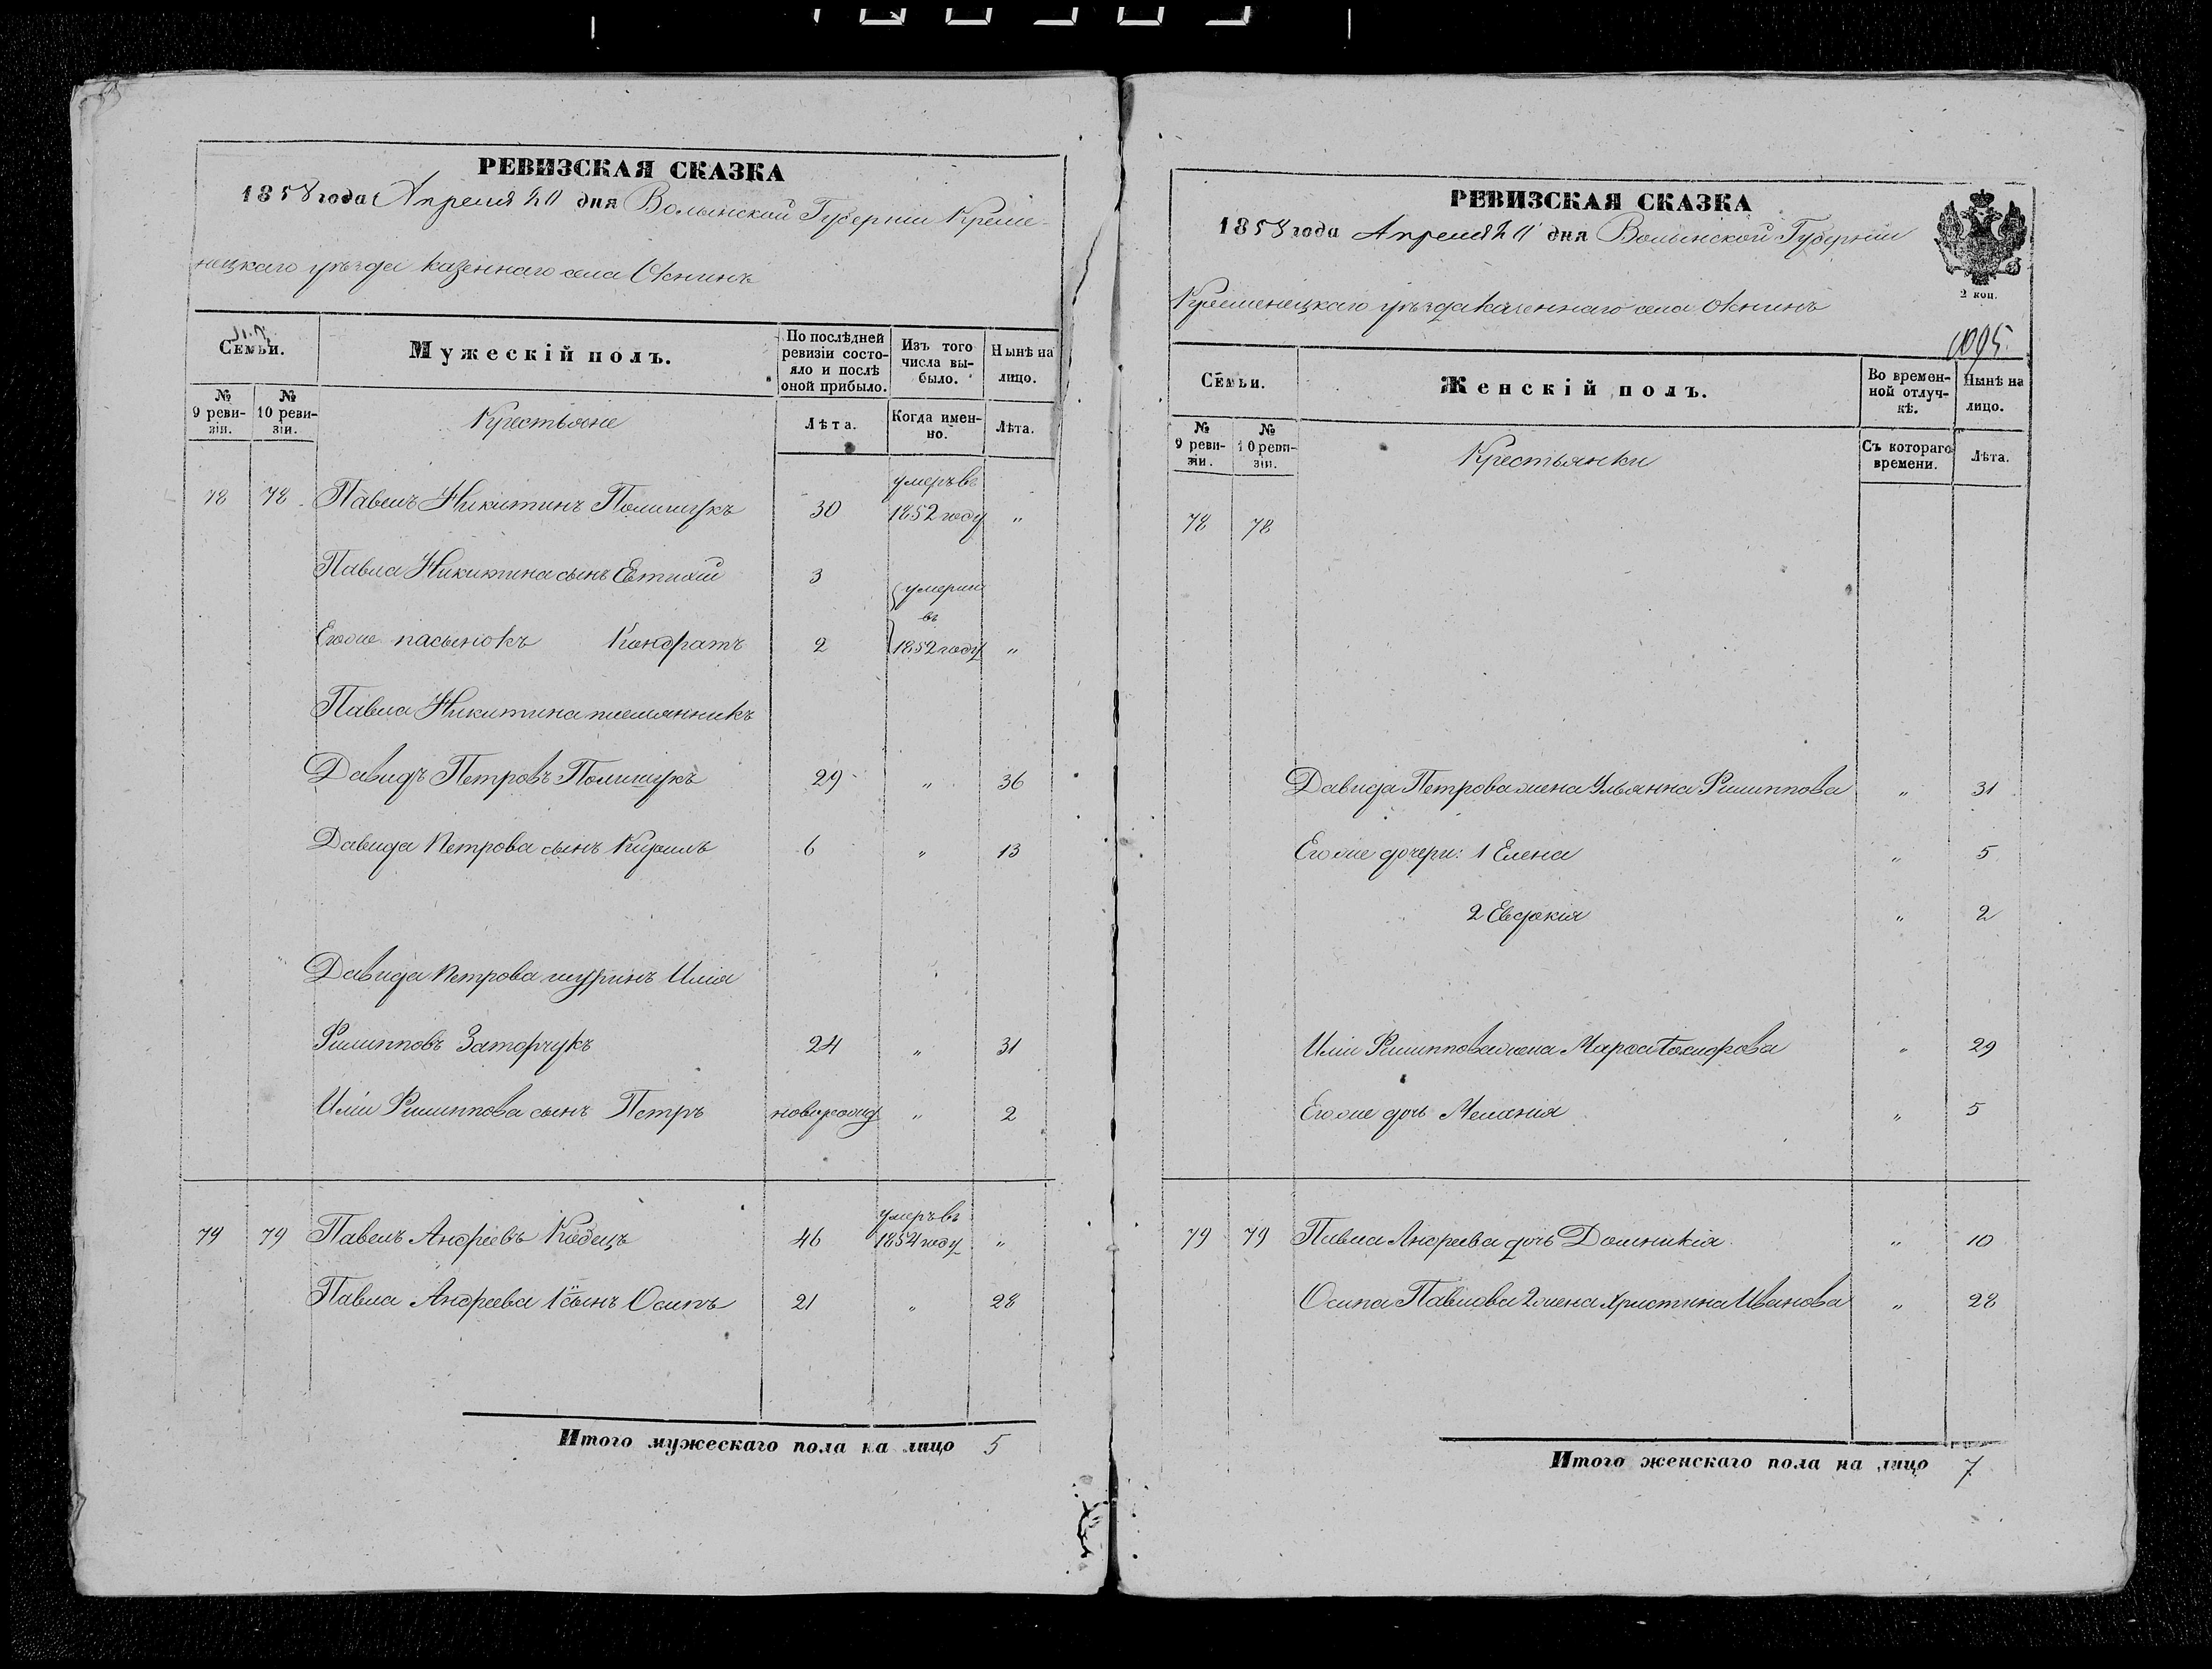 РЕВИЗСКАЯ СКАЗКА
1858 года Апреля 20 дня Волынской Губернии Креме-
нецкаго уѣзда казеннаго села Окнинъ
Семьи.
Мужескій полъ.
По послѣдней ревизіи состояло и послѣ оной прибыло.
Изъ того числа выбыло.
Нынѣ на лицо.
№ 9 ревизіи.
№ 10 ревизіи.
Крестьяне
Лѣта.
Когда именно.
Лѣта.
78 78 Павелъ Никитинъ Полищукъ 30 умеръ въ 1852 году "
Павла Никитина сынъ Евтихій 3
Егоже пасынокъ Кондратъ 2 умерли въ 1852 году "
Павла Никитина племянникъ
Давидъ Петровъ Полищукъ 29 " 36
Давида Петрова сынъ Кирилъ 6 " 13
Давида Петрова шуринъ Илія
Филипповъ Заторчукъ 24 " 31
Иліи Филиппова сынъ Петръ новорожд " 2
79 79 Павелъ Андреевъ 46 умеръ въ 1854 году "
Павла Андреева 1й сынъ Осипъ 21 " 28
Итого мужескаго пола на лицо 5
РЕВИЗСКАЯ СКАЗКА
1858 года Апреля 20 дня Волынской Губерніи
2 коп.
Кременецкаго уѣзда казеннаго села Окнинъ
1095.
Семьи.
Женскій полъ.
Во временной отлучкѣ.
Нынѣ на лицо.
№ 9 ревизіи.
№ 10 ревизіи.
Крестьянки
Съ котораго времени.
Лѣта.
78 78
Давида Петрова жена Ульянна Филиппова " 31
Егоже дочери: 1 Елена " 5
2 Евдокія " 2
Иліи Филиппова жена Марфа " 29
Егоже дочь Меланія " 5
79 79 Павла Андреева дочь Домникія " 10
Осипа Павлова 2 жена Христина Иванова " 28
Итого женскаго пола на лицо 7